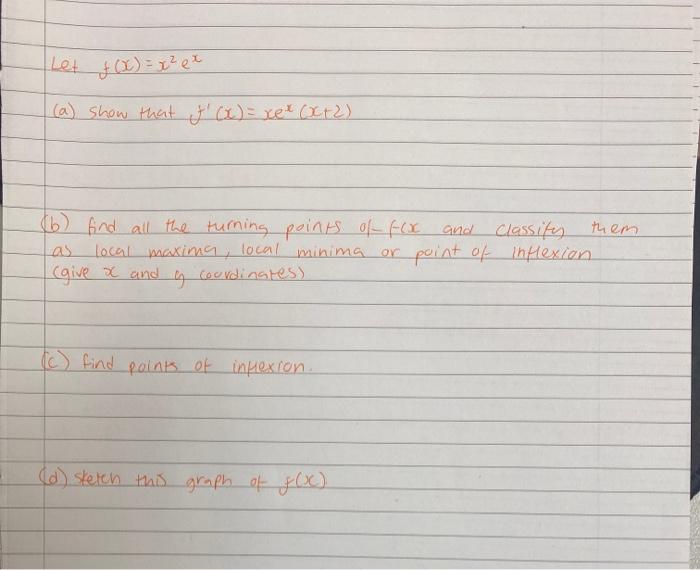 Let f(x) = x² eˣ
(a) show that f'(x) = xeˣ (x+2)
(b) find all the turning points of f(x and classify them
as local maxima, local minima or point of inflexion
(give x and y coordinates)
(c) find points of inflexion.
(d) sketch this graph of f(x)